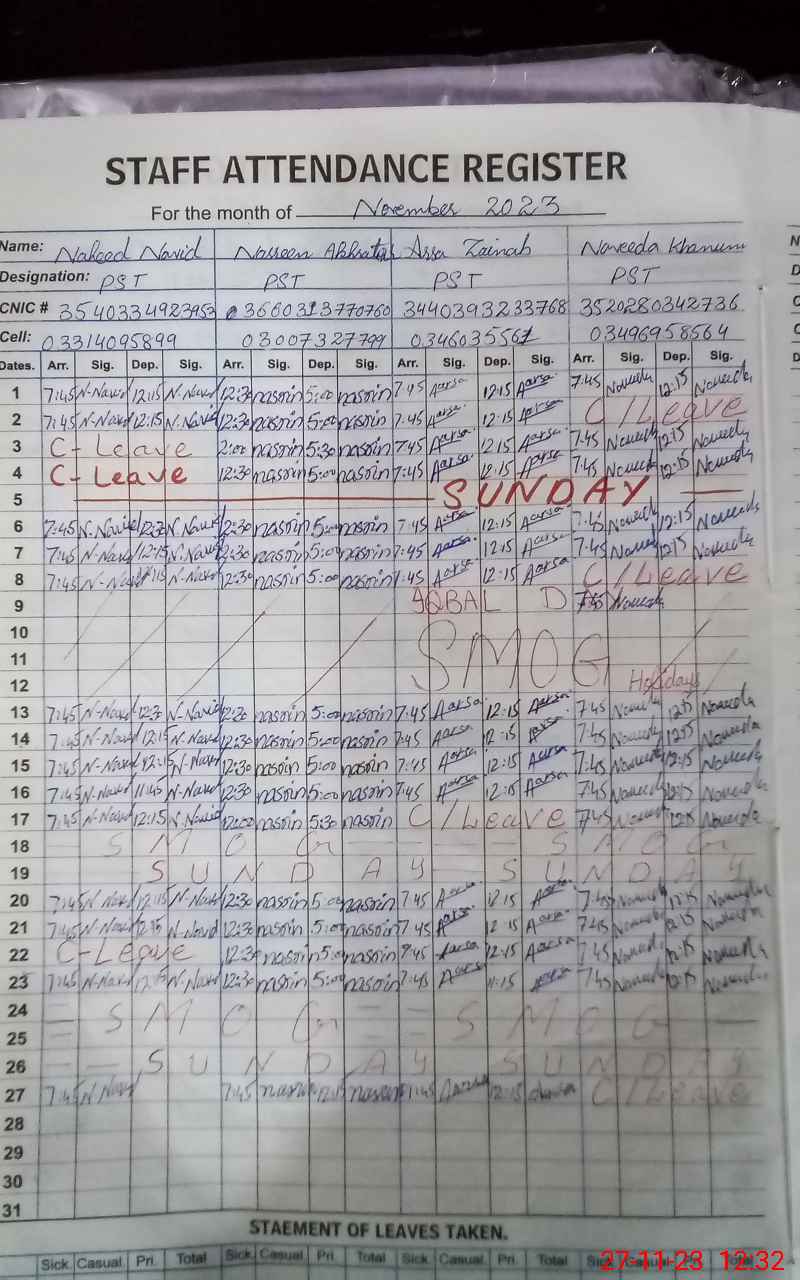 STAFF ATTENDANCE REGISTER
For the month of November 2023
Name: Naheed Navid Nasreen Akhtar Arsa Zainab Naveeda Khanum
Designation: PST PST PST PST
CNIC # 3540334923953 3660313770760 3440393233768 3520280342736
Cell: 03314095899 03007327799 0346035561 03496958564
Dates. Arr. Sig. Dep. Sig. Arr. Sig. Dep. Sig. Arr. Sig. Dep. Sig. Arr. Sig. Dep. Sig.
1 7:45 N-Navid 12:15 N-Navid 12:30 nasrin 5:00 nasrin 7:45 Aarsa 12:15 Aarsa 7:45 Naveeda 12:15 Naveeda
2 7:45 N-Navid 12:15 N-Navid 12:30 nasrin 5:00 nasrin 7:45 Aarsa 12:15 Aarsa C/Leave
3 C-Leave 2:00 nasrin 5:30 nasrin 7:45 Aarsa 12:15 Aarsa 7:45 Naveeda 12:15 Naveeda
4 C-Leave 12:30 nasrin 5:00 nasrin 7:45 Aarsa 12:15 Aarsa 7:45 Naveeda 12:15 Naveeda
5 SUNDAY
6 7:45 N-Navid N-Navid 12:30 nasrin 5:00 nasrin 7:45 Aarsa 12:15 Aarsa 7:45 Naveeda 12:15 Naveeda
7 7:45 N-Navid 12:15 N-Navid 12:30 nasrin 5:00 nasrin 7:45 Aarsa 12:15 Aarsa 7:45 Naveeda 12:15 Naveeda
8 7:45 N-Navid N-Navid 12:30 nasrin 5:00 nasrin 7:45 Aarsa 12:15 Aarsa C/Leave
9 IQBAL D 7:45 Naveeda
10
11 SMOG
12 Holidays
13 7:45 N-Navid 12:30 N-Navid 12:30 nasrin 5:00 nasrin 7:45 Aarsa 12:15 Aarsa 7:45 Naveeda 12:15 Naveeda
14 7:45 N-Navid 12:15 N-Navid 12:30 nasrin 5:00 nasrin 7:45 Aarsa 12:15 Aarsa 7:45 Naveeda 12:15 Naveeda
15 7:45 N-Navid 12:15 N-Navid 12:30 nasrin 5:00 nasrin 7:45 Aarsa 12:15 Aarsa 7:45 Naveeda 12:15 Naveeda
16 7:45 N-Navid 11:45 N-Navid 12:30 nasrin 5:00 nasrin 7:45 Aarsa 12:15 Aarsa 7:45 Naveeda 12:15 Naveeda
17 7:45 N-Navid 12:15 N-Navid 12:00 nasrin 5:30 nasrin C/Leave 7:45 Naveeda 12:15 Naveeda
18 SMOG SMOG
19 SUNDAY SUNDAY
20 7:45 N-Navid 12:15 N-Navid 12:30 nasrin 5:00 nasrin 7:45 Aarsa 12:15 Aarsa 7:45 Naveeda 12:15 Naveeda
21 7:45 N-Navid 12:15 N-Navid 12:30 nasrin 5:00 nasrin 7:45 Aarsa 12:15 Aarsa 7:45 Naveeda 12:15 Naveeda
22 C-Leave 12:30 nasrin 5:00 nasrin 7:45 Aarsa 12:15 Aarsa 7:45 Naveeda 12:15 Naveeda
23 7:45 N-Navid 12:15 N-Navid 12:30 nasrin 5:00 nasrin 7:45 Aarsa 11:15 Aarsa 7:45 Naveeda 12:15 Naveeda
24 SMOG SMOG
25
26 SUNDAY SUNDAY
27 7:45 N-Navid 7:45 nasrin 12:15 nasrin 7:45 Aarsa 12:15 Aarsa C/Leave
28
29
30
31
STAEMENT OF LEAVES TAKEN.
Sick. Casual. Pri. Total Sick. Casual. Pri. Total Sick. Casual. Pri. Total Sick. Casual. Pri. Total
27-11-23 12:32